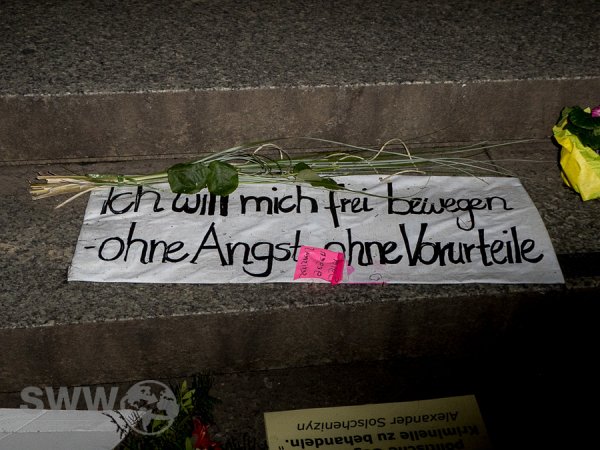 Ich will mich frei bewegen
-ohne Angst, ohne Vorurteile
SWW
Alexander Solschenizyn
Kriminelle zu behandeln."
politische